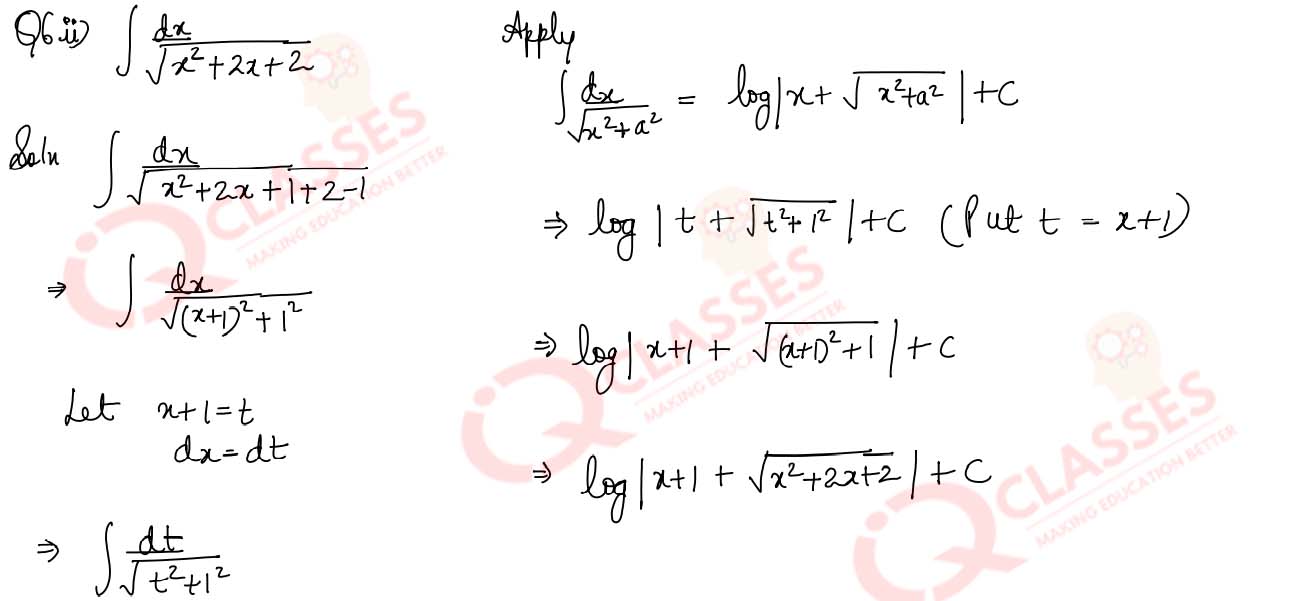 Q6 ii) ∫ dx / √(x²+2x+2)
Soln ∫ dx / √(x²+2x+1+2-1)
⇒ ∫ dx / √((x+1)²+1²)
Let x+1=t
dx=dt
⇒ ∫ dt / √(t²+1²)
Apply
∫ dx / √(x²+a²) = log|x+√(x²+a²)|+C
⇒ log|t+√(t²+1²)|+C (Put t = x+1)
⇒ log|x+1+√((x+1)²+1)|+C
⇒ log|x+1+√(x²+2x+2)|+C
IQ CLASSES
MAKING EDUCATION BETTER
IQ CLASSES
MAKING EDUCATION BETTER
IQ CLASSES
MAKING EDUCATION BETTER